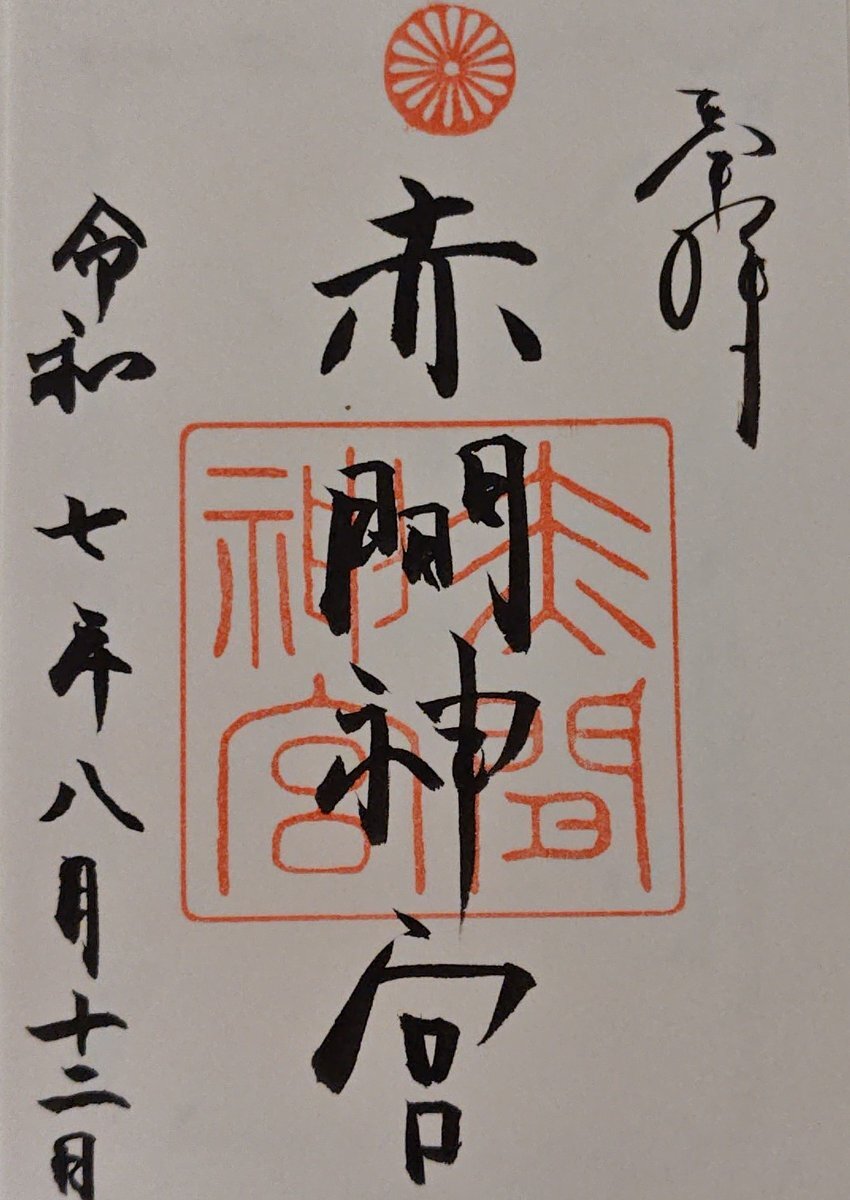 奉拝
赤間神宮
赤間
神宮
令和七年八月十二日